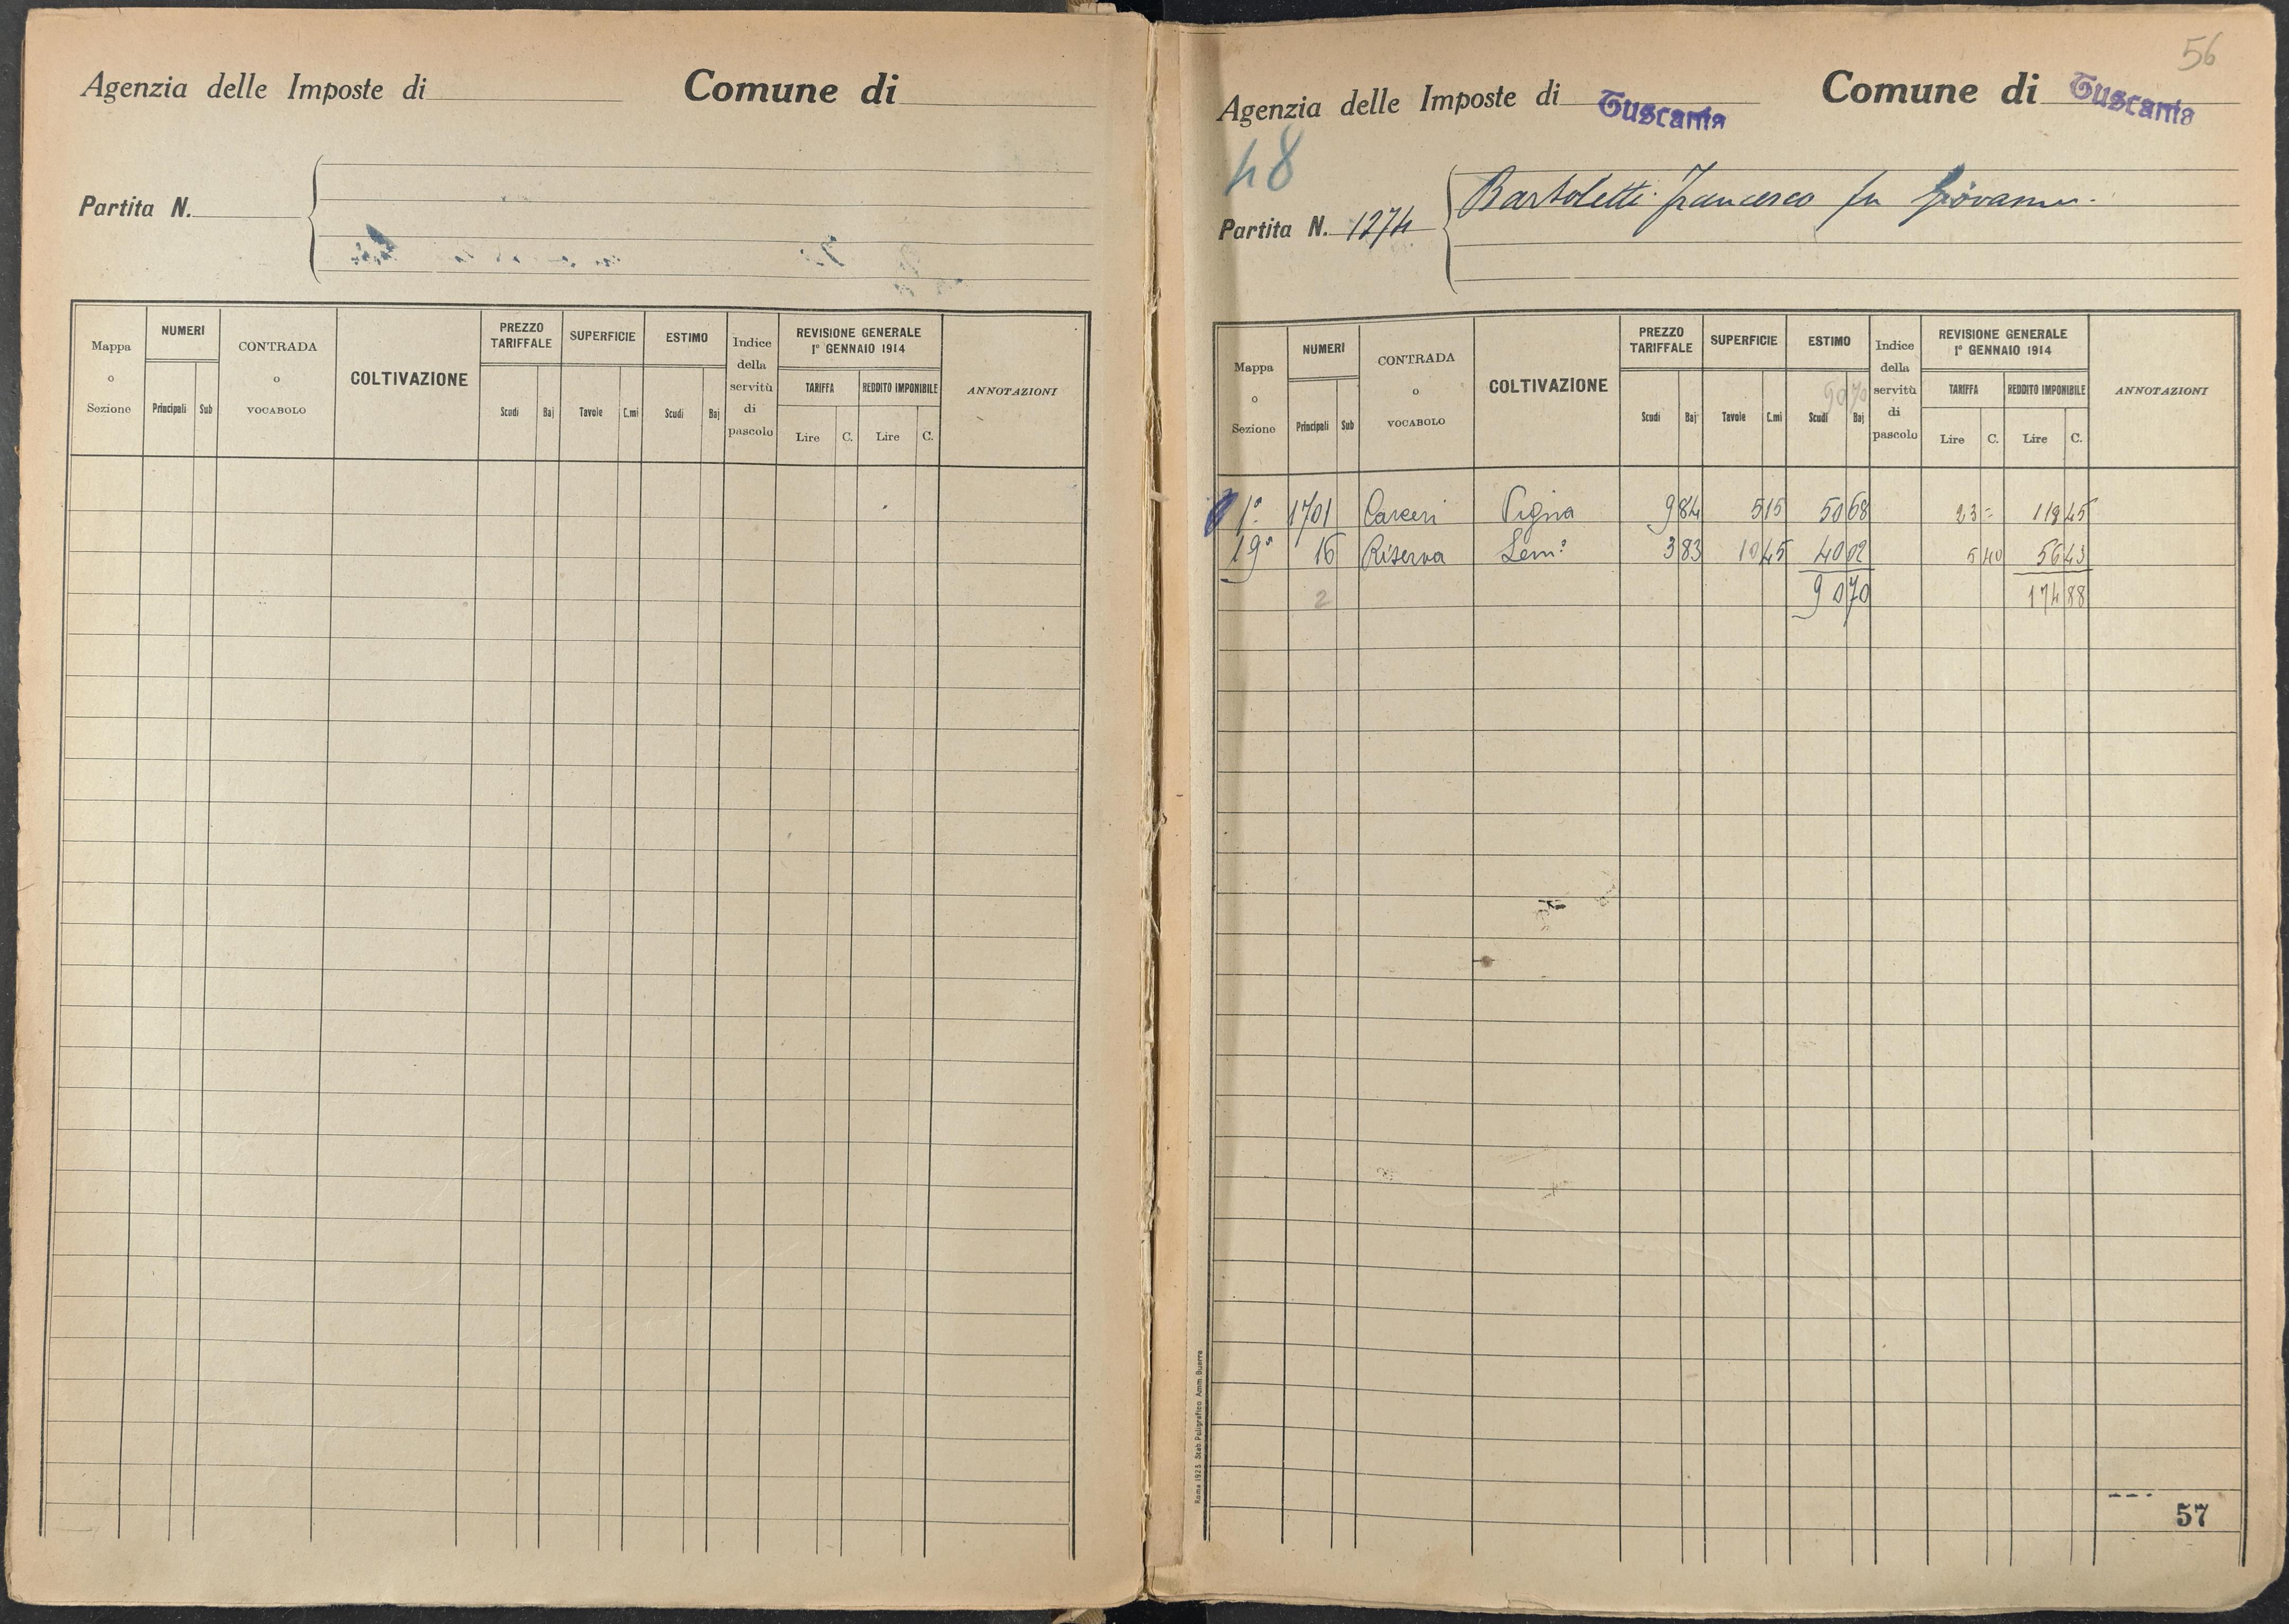 Agenzia delle Imposte di
Comune di
Partita N.
Mappa o Sezione
NUMERI
Principali
Sub
CONTRADA o VOCABOLO
COLTIVAZIONE
PREZZO TARIFFALE
Scudi
Baj
SUPERFICIE
Tavole
C.mi
ESTIMO
Scudi
Baj
Indice della servitù di pascolo
REVISIONE GENERALE
1° GENNAIO 1914
TARIFFA
REDDITO IMPONIBILE
Lire
C.
Lire
C.
ANNOTAZIONI
56
Agenzia delle Imposte di Tuscania
Comune di Tuscania
48
Partita N. 1274
Bartoletti Francesco fu Giovanni.
Mappa o Sezione
NUMERI
Principali
Sub
CONTRADA o VOCABOLO
COLTIVAZIONE
PREZZO TARIFFALE
Scudi
Baj
SUPERFICIE
Tavole
C.mi
ESTIMO
9070
Scudi
Baj
Indice della servitù di pascolo
REVISIONE GENERALE
1° GENNAIO 1914
TARIFFA
REDDITO IMPONIBILE
Lire
C.
Lire
C.
ANNOTAZIONI
1° 1701 Carceri Vigna 9 84 5 15 50 68 23 = 118 45
19° 16 Riserva Sem° 3 83 10 45 40 02 5 40 56 43
2 90 70 174 88
Roma 1923 Stab. Poligrafico Amm. Guerra
57